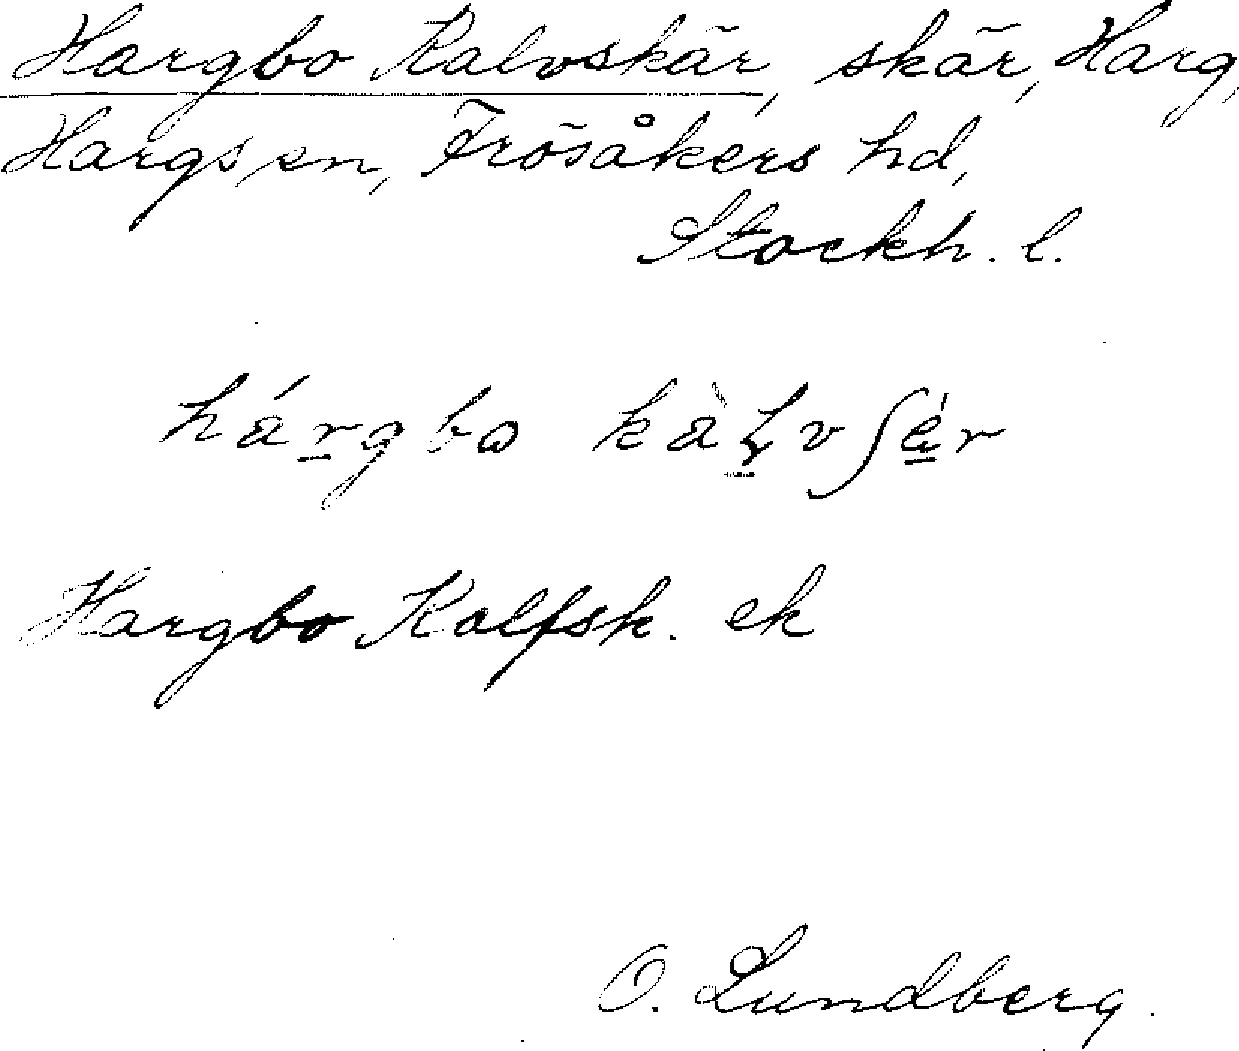 Hargbo Kalvskär, skär, Harg,
Hargs sn, Frösåkers hd,
Stockh. l.
hárgbo kàlvʃér
Hargbo Kalfsk. ek
O. Lundberg.